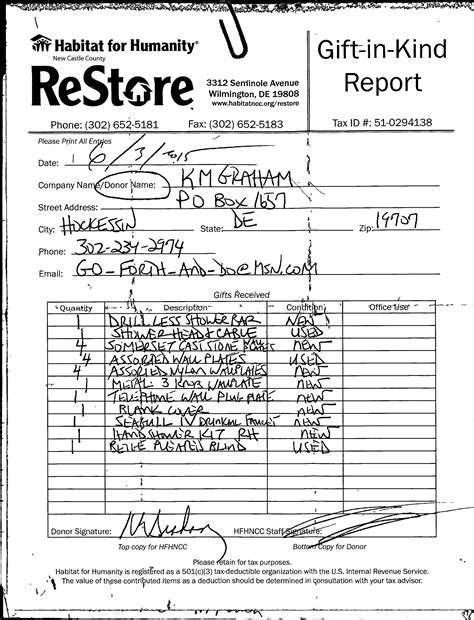 Habitat for Humanity®
New Castle County
ReStore
3312 Seminole Avenue
Wilmington, DE 19808
www.habitatncc.org/restore
Gift-in-Kind
Report
Phone: (302) 652-5181 Fax: (302) 652-5183 Tax ID #: 51-0294138
Please Print All Entries
Date: 6/3/2015
Company Name/Donor Name: KM GRAHAM
Street Address: PO BOX 1657
City: HOCKESSIN State: DE Zip: 19707
Phone: 302-234-2974
Email: GO_FORTH_AND_DO@MSN.COM
Gifts Received
Quantity Description Condition Office Use
1 DRILL LESS SHOWER BAR NEW
1 SHOWER HEAD & CABLE USED
4 SOMERSET CAST STONE PLATES NEW
4 ASSORTED WALL PLATES USED
4 ASSORTED NYLON WALLPLATES NEW
1 METAL 3 KNOB WALLPLATE NEW
1 TELEPHONE WALL PLUG PLATE NEW
1 BLANK COVER NEW
1 SEAGULL IV DRINKING FAUCET NEW
1 HAND SHOWER KIT RH NEW
1 PLEATED BLIND USED
Donor Signature: HFHNCC Staff Signature:
Top copy for HFHNCC Bottom Copy for Donor
Please retain for tax purposes.
Habitat for Humanity is registered as a 501(c)(3) tax-deductible organization with the U.S. Internal Revenue Service.
The value of these contributed items as a deduction should be determined in consultation with your tax advisor.